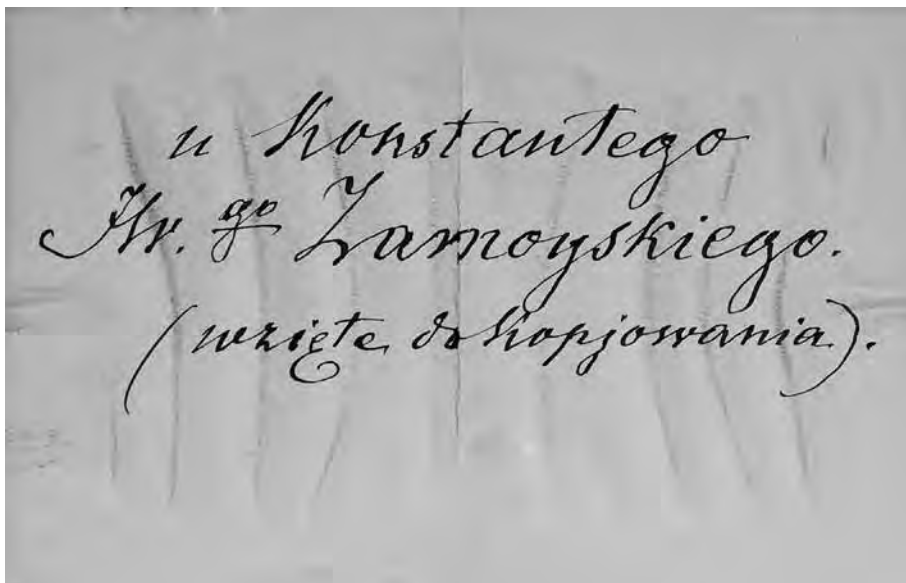 u Konstantego
Hr. go Zamoyskiego.
(wzięte do kopjowania).